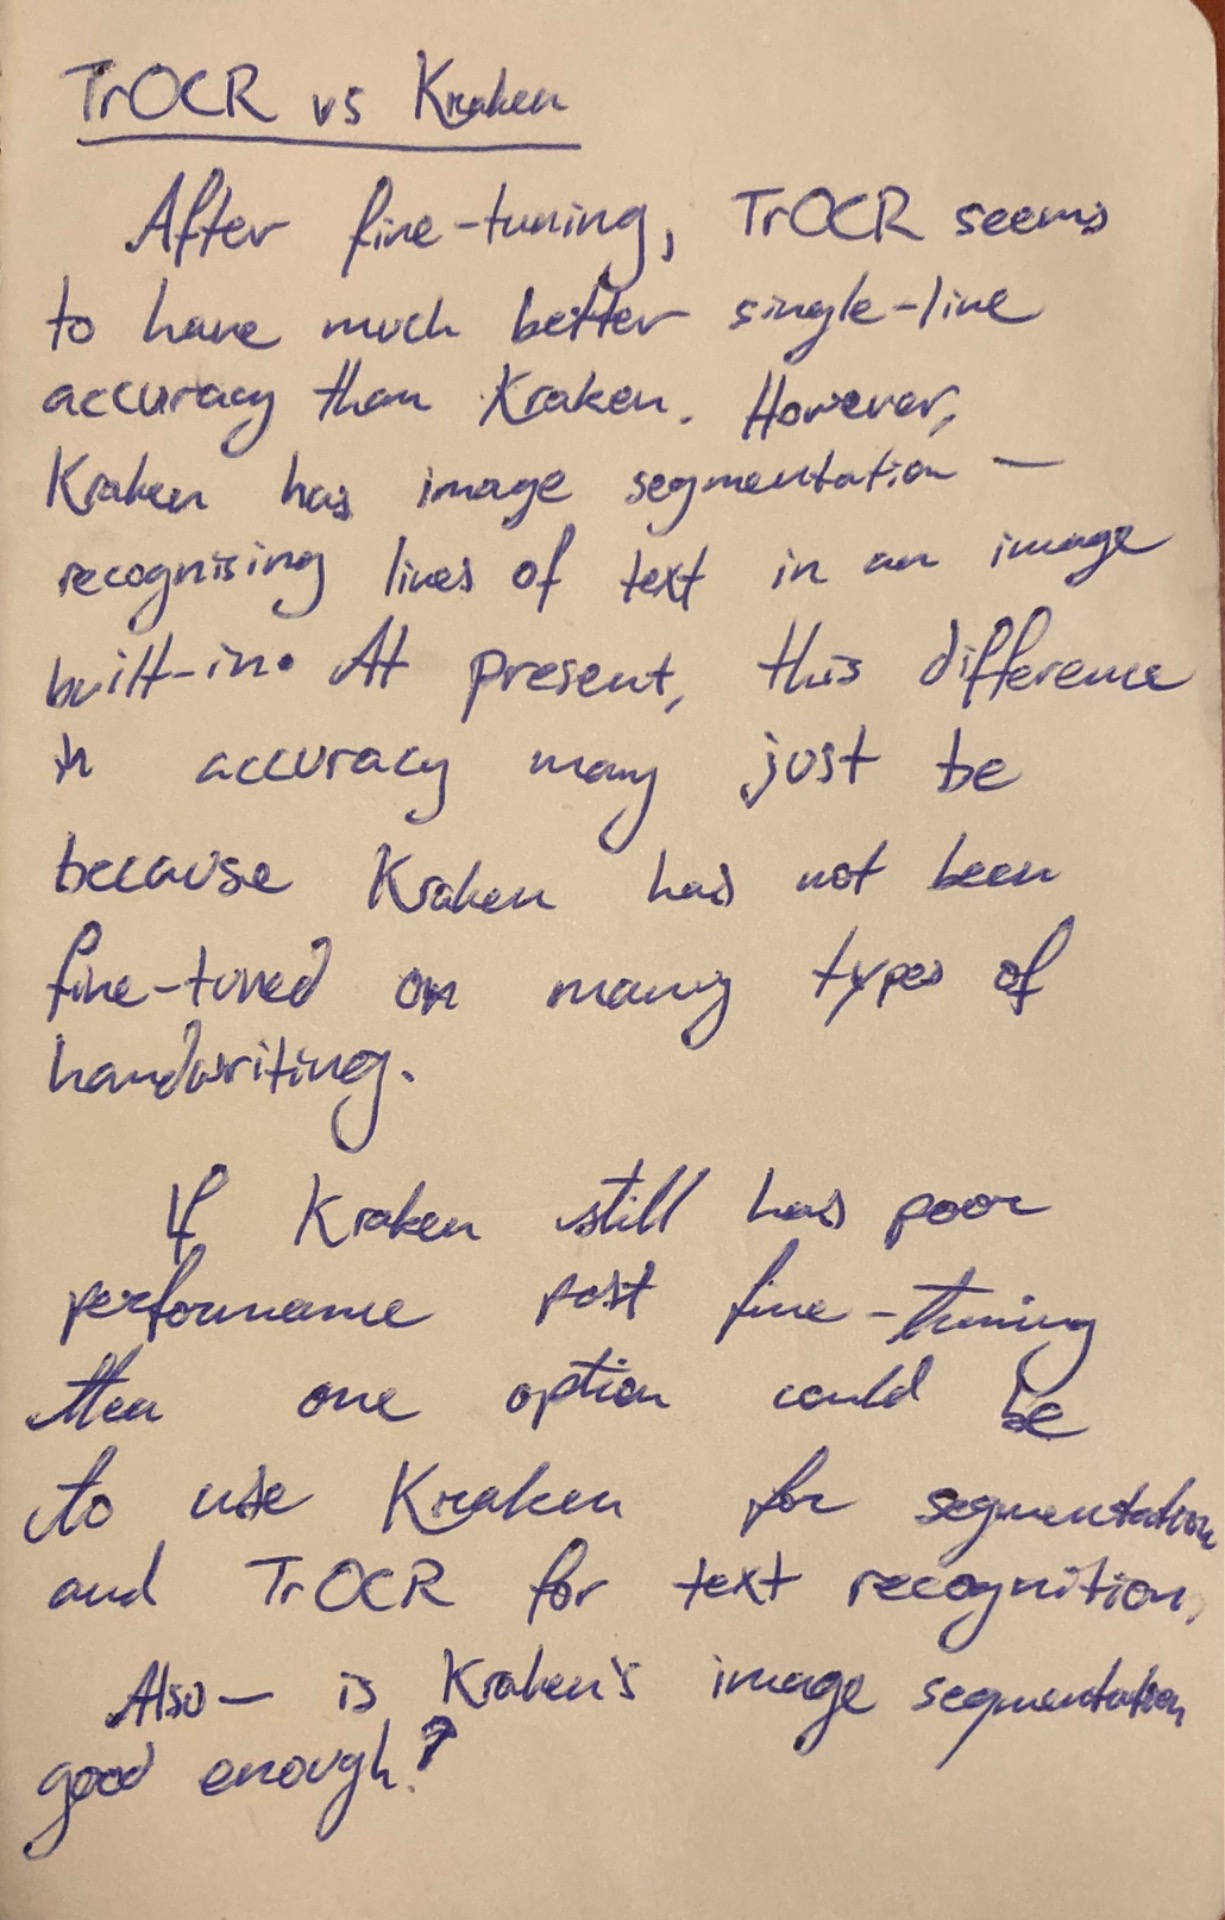 TrOCR vs Kraken
After fine-tuning, TrOCR seems
to have much better single-line
accuracy than Kraken. However,
Kraken has image segmentation —
recognising lines of text in an image
built-in. At present, this difference
in accuracy may just be
because Kraken has not been
fine-tuned on many types of
handwriting.
If Kraken still has poor
performance post fine-tuning
then one option could be
to use Kraken for segmentation
and TrOCR for text recognition.
Also — is Kraken's image segmentation
good enough?